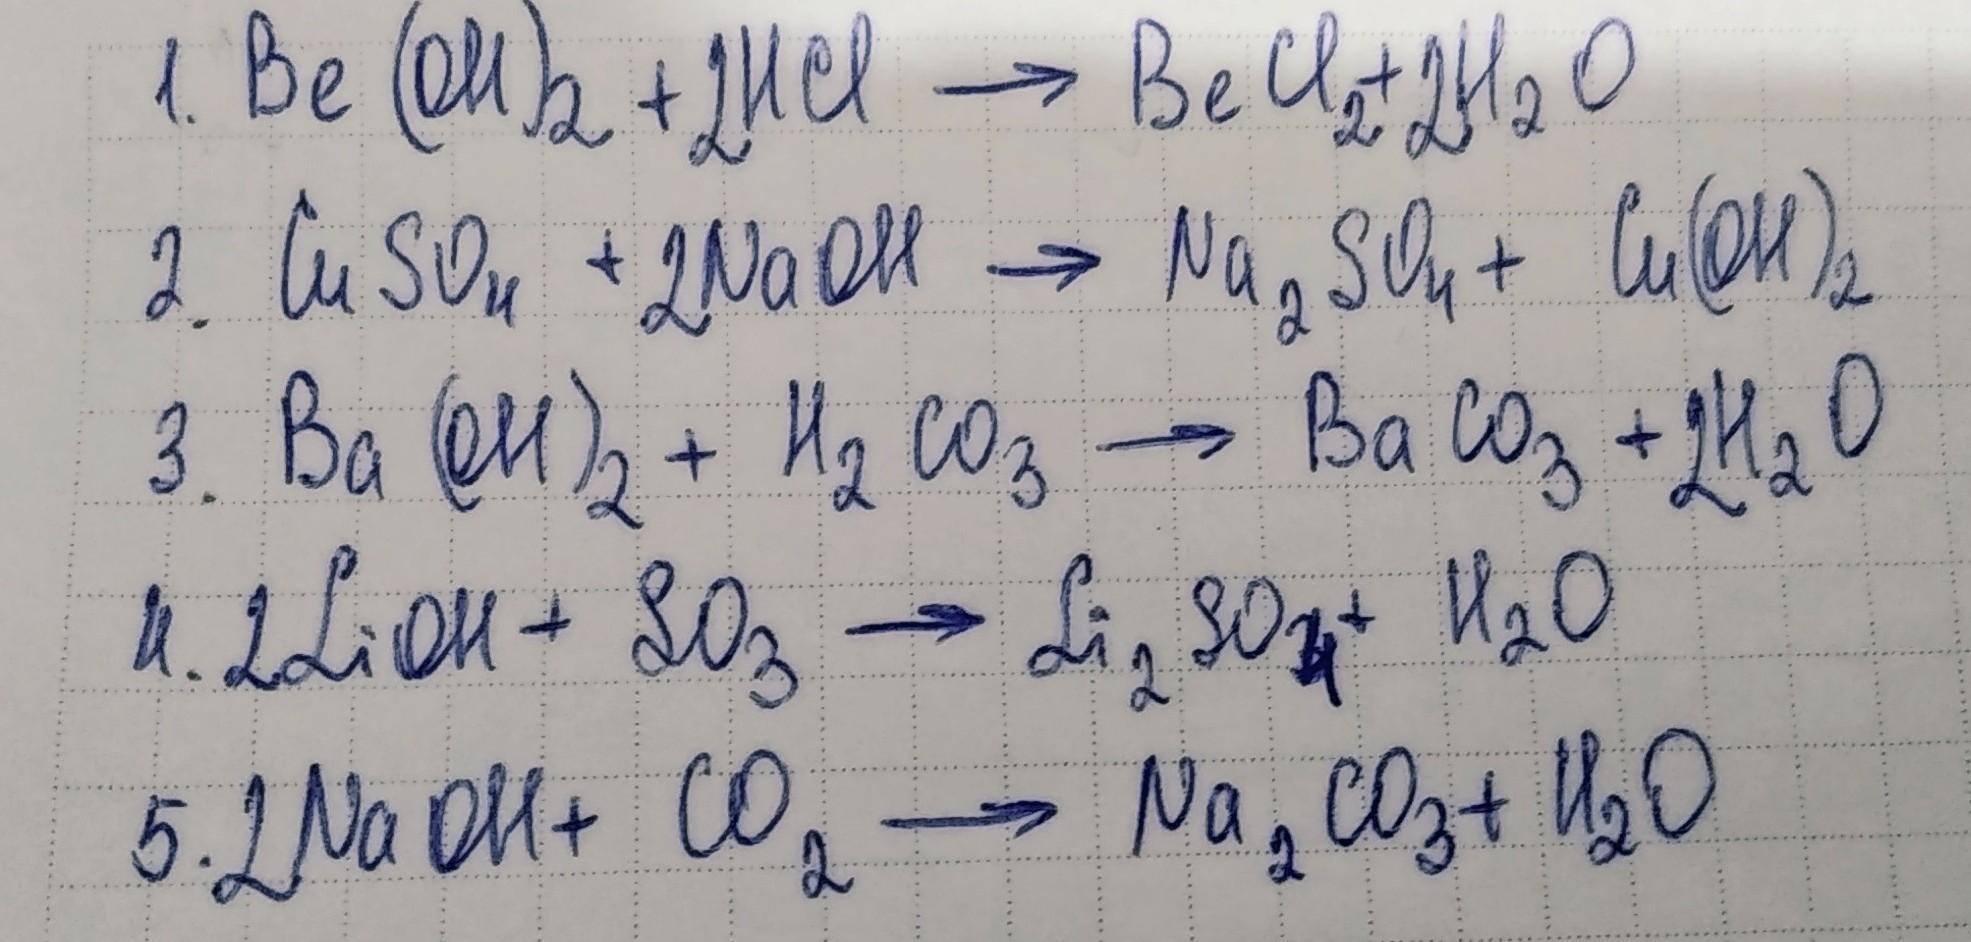 1. Be(OH)₂ + 2HCl → BeCl₂ + 2H₂O
2. CuSO₄ + 2NaOH → Na₂SO₄ + Cu(OH)₂
3. Ba(OH)₂ + H₂CO₃ → BaCO₃ + 2H₂O
4. 2LiOH + SO₃ → Li₂SO₄ + H₂O
5. 2NaOH + CO₂ → Na₂CO₃ + H₂O